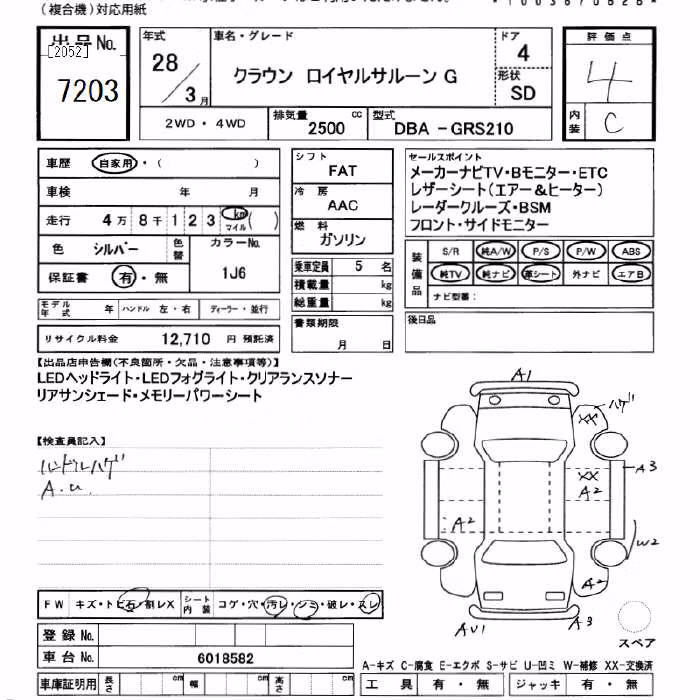 (複合機)対応用紙
出品No.
[2052]
7203
年式
28/3月
車名・グレード
クラウン ロイヤルサルーン G
ドア
4
形状
SD
評価点
4
内装
C
2WD・4WD
排気量
2500 cc
型式
DBA -GRS210
車歴 自家用・( )
車検 年 月
走行 4万 8千 1 2 3 km マイル ( )
色 シルバー
色替
カラーNo.
1J6
保証書 有・無
モデル年式 年 ハンドル 左・右 ディーラー・並行
リサイクル料金 12,710 円 預託済
シフト
FAT
冷房
AAC
燃料
ガソリン
乗車定員 5 名
積載量 kg
総重量 kg
書類期限
月 日
セールスポイント
メーカーナビTV・Bモニター・ETC
レザーシート(エアー&ヒーター)
レーダークルーズ・BSM
フロント・サイドモニター
装備品
S/R 純A/W P/S P/W ABS
純TV 純ナビ 革シート 外ナビ エアB
ナビ型番:
後日品
【出品店申告欄(不良箇所・欠品・注意事項等)】
LEDヘッドライト・LEDフォグライト・クリアランスソナー
リアサンシェード・メモリーパワーシート
【検査員記入】
ハンドルハゲ
A.U.
A1
XX
ハゲ
A3
XX
A2
A2
W2
A2
AU1
A3
スペア
FW キズ・トビ石・割レX
シート内装 コゲ・穴・汚レ・シミ・破レ・スレ
登録No.
車台No. 6018582
車庫証明用 長さ cm 幅 cm 高さ cm
A-キズ C-腐食 E-エクボ S-サビ U-凹ミ W-補修 XX-交換済
工具 有・無 ジャッキ 有・無